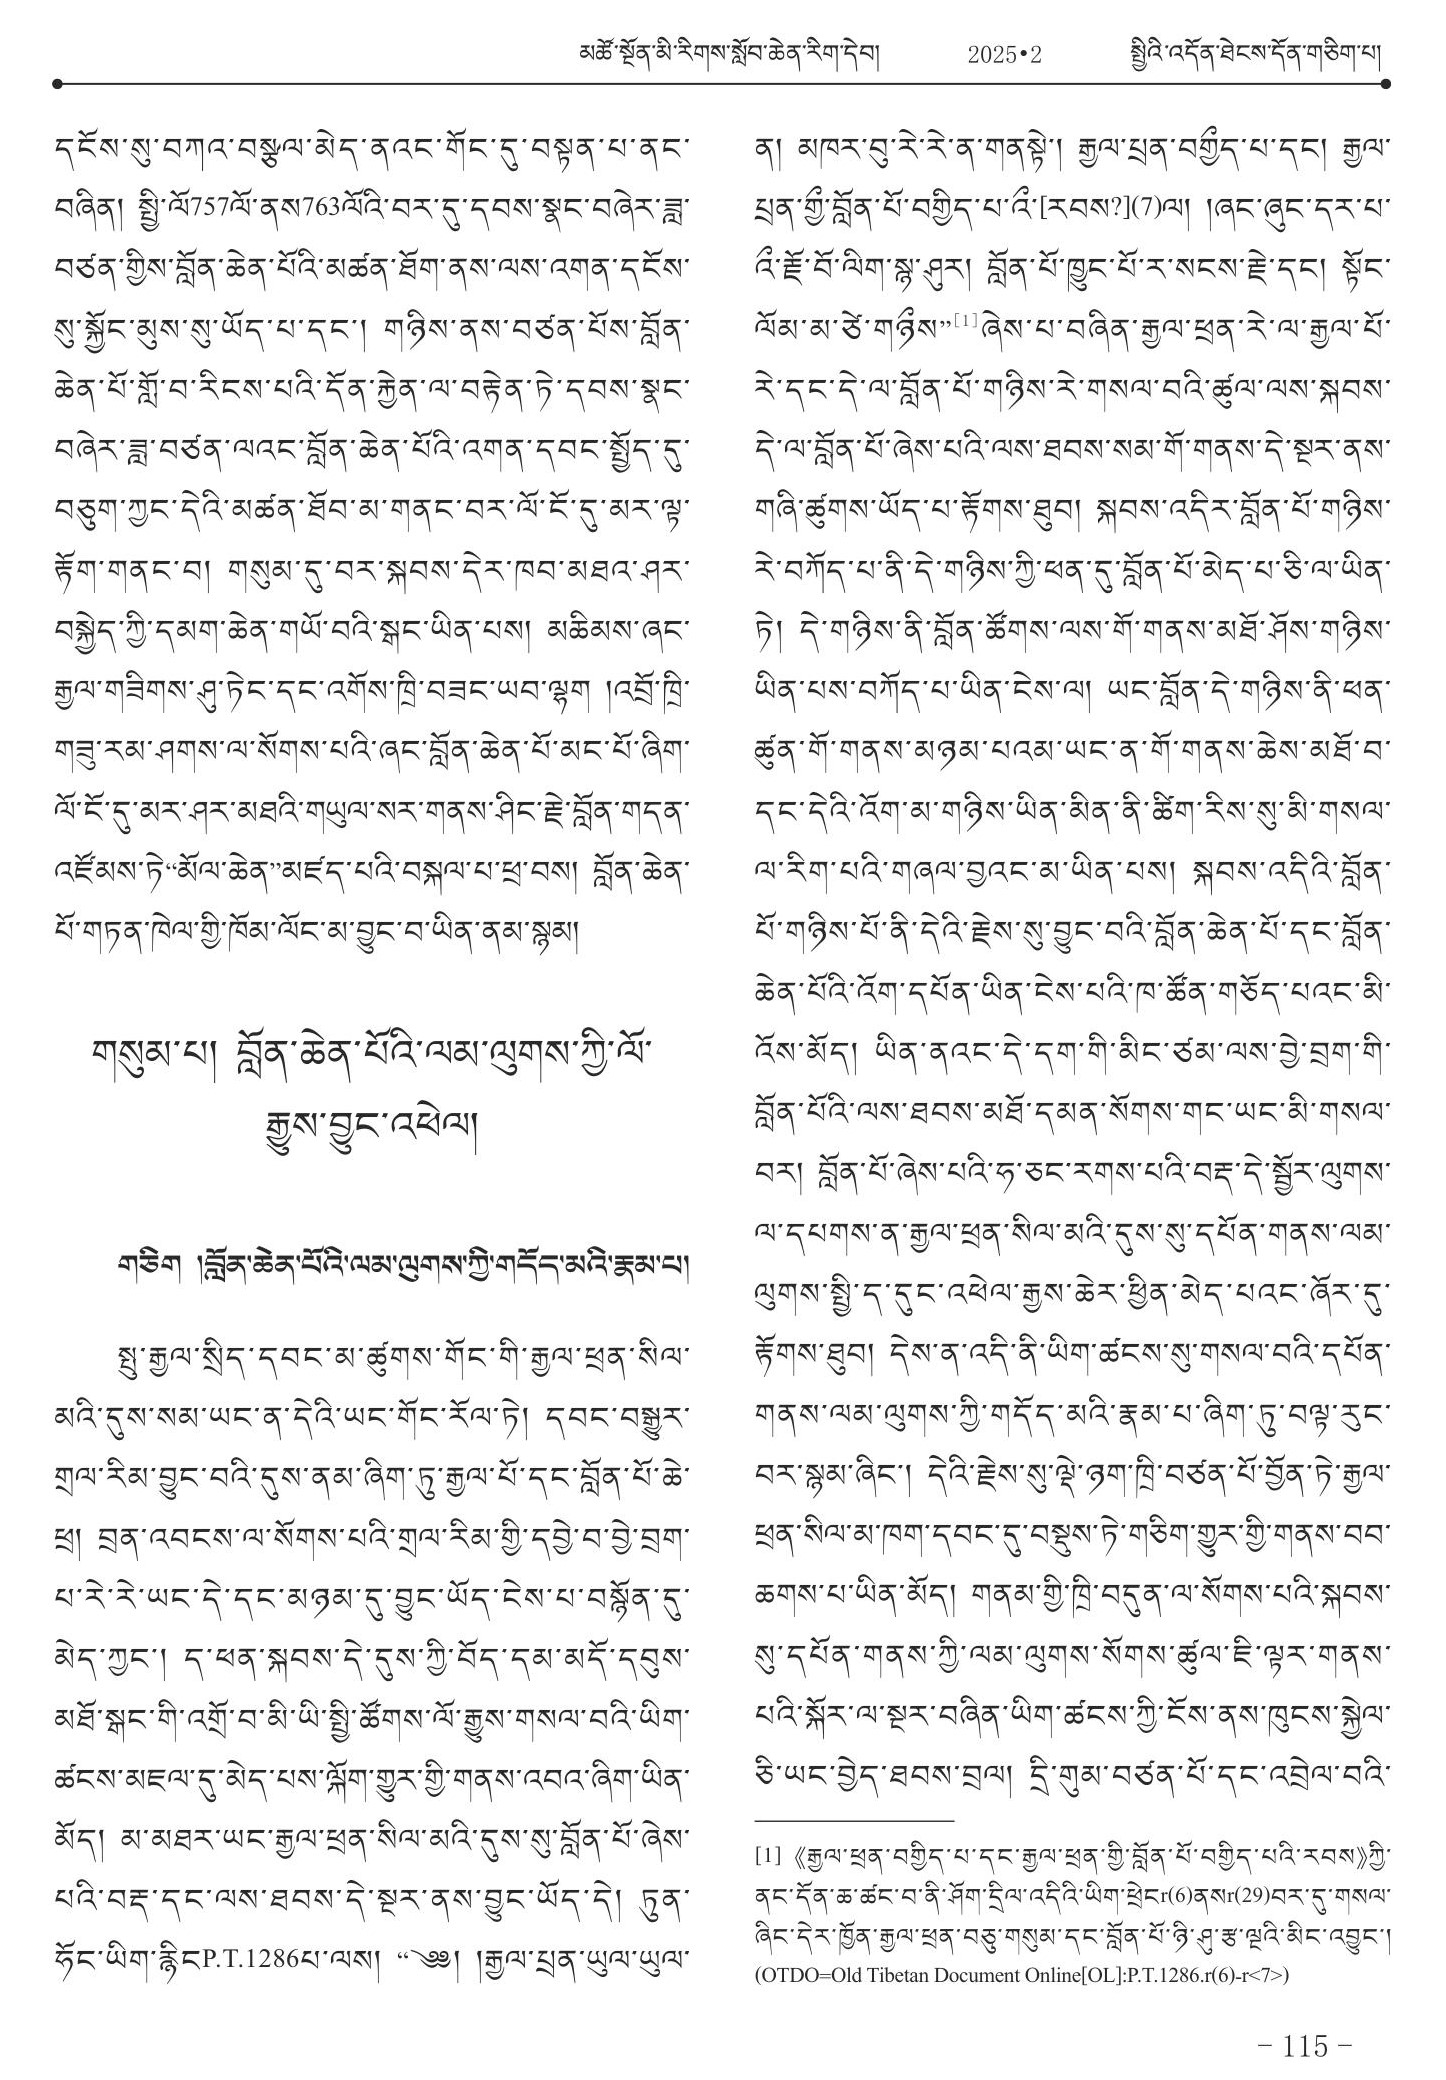 མཚོ་སྔོན་མི་རིགས་སློབ་ཆེན་རིག་དེབ། 2025•2 སྤྱིའི་འདོན་ཐེངས་དོན་གཅིག་པ།
དངོས་སུ་བཀའ་བསྩལ་མེད་ནའང་གོང་དུ་བསྟན་པ་ནང་
བཞིན། སྤྱི་ལོ757ལོ་ནས763ལོའི་བར་དུ་དབས་སྣང་བཞེར་ཟླ་
བཙན་གྱིས་བློན་ཆེན་པོའི་མཚན་ཐོག་ནས་ལས་འགན་དངོས་
སུ་སྐྱོང་མུས་སུ་ཡོད་པ་དང་། གཉིས་ནས་བཙན་པོས་བློན་
ཆེན་པོ་གློ་བ་རིངས་པའི་དོན་རྐྱེན་ལ་བརྟེན་ཏེ་དབས་སྣང་
བཞེར་ཟླ་བཙན་ལའང་བློན་ཆེན་པོའི་འགན་དབང་སྤྱོད་དུ་
བཅུག་ཀྱང་དེའི་མཚན་ཐོབ་མ་གནང་བར་ལོ་ངོ་དུ་མར་ལྟ་
རྟོག་གནང་བ། གསུམ་དུ་བར་སྐབས་དེར་ཁབ་མཐའ་ཤར་
བསྐྱེད་ཀྱི་དམག་ཆེན་གཡོ་བའི་སྒང་ཡིན་པས། མཆིམས་ཞང་
རྒྱལ་གཟིགས་ཤུ་ཏེང་དང་འགོས་ཁྲི་བཟང་ཡབ་ལྷག །འབྲོ་ཁྲི་
གཟུ་རམ་ཤགས་ལ་སོགས་པའི་ཞང་བློན་ཆེན་པོ་མང་པོ་ཞིག་
ལོ་ངོ་དུ་མར་ཤར་མཐའི་གཡུལ་སར་གནས་ཤིང་རྗེ་བློན་གདན་
འཛོམས་ཏེ“མོལ་ཆེན”མཛད་པའི་བསྐལ་པ་ཕྲ་བས། བློན་ཆེན་
པོ་གཏན་ཁེལ་གྱི་ཁོམ་ལོང་མ་བྱུང་བ་ཡིན་ནམ་སྙམ།
གསུམ་པ། བློན་ཆེན་པོའི་ལམ་ལུགས་ཀྱི་ལོ་
རྒྱུས་བྱུང་འཕེལ།
གཅིག །བློན་ཆེན་པོའི་ལམ་ལུགས་ཀྱི་གདོད་མའི་རྣམ་པ།
སྤུ་རྒྱལ་སྲིད་དབང་མ་ཚུགས་གོང་གི་རྒྱལ་ཕྲན་སིལ་
མའི་དུས་སམ་ཡང་ན་དེའི་ཡང་གོང་རོལ་ཏེ། དབང་བསྒྱུར་
གྲལ་རིམ་བྱུང་བའི་དུས་ནམ་ཞིག་ཏུ་རྒྱལ་པོ་དང་བློན་པོ་ཆེ་
ཕྲ། བྲན་འབངས་ལ་སོགས་པའི་གྲལ་རིམ་གྱི་དབྱེ་བ་བྱེ་བྲག་
པ་རེ་རེ་ཡང་དེ་དང་མཉམ་དུ་བྱུང་ཡོད་ངེས་པ་བསྙོན་དུ་
མེད་ཀྱང་། ད་ཕན་སྐབས་དེ་དུས་ཀྱི་བོད་དམ་མདོ་དབུས་
མཐོ་སྒང་གི་འགྲོ་བ་མི་ཡི་སྤྱི་ཚོགས་ལོ་རྒྱུས་གསལ་བའི་ཡིག་
ཚངས་མཇལ་དུ་མེད་པས་ལྐོག་གྱུར་གྱི་གནས་འབའ་ཞིག་ཡིན་
མོད། མ་མཐར་ཡང་རྒྱལ་ཕྲན་སིལ་མའི་དུས་སུ་བློན་པོ་ཞེས་
པའི་བརྡ་དང་ལས་ཐབས་དེ་སྔར་ནས་བྱུང་ཡོད་དེ། ཏུན་
ཧོང་ཡིག་རྙིངP.T.1286པ་ལས། “༄༅། །རྒྱལ་པྲན་ཡུལ་ཡུལ་
ན། མཁར་བུ་རེ་རེ་ན་གནསྟེ་། རྒྱལ་པྲན་བགྱྀད་པ་དང། རྒྱལ་
པྲན་གྱྀ་བློན་པོ་བགྱིད་པ་འྀ་[རབས?](7)ལ། །ཞང་ཞུང་དར་པ་
འྀ་རྗོ་བོ་ལིག་སྙ་ཤུར། བློན་པོ་ཁྱུང་པོ་ར་སངས་རྗེ་དང། སྟོང་
ལོམ་མ་ཙེ་གཉྀས”[1]ཞེས་པ་བཞིན་རྒྱལ་ཕྲན་རེ་ལ་རྒྱལ་པོ་
རེ་དང་དེ་ལ་བློན་པོ་གཉིས་རེ་གསལ་བའི་ཚུལ་ལས་སྐབས་
དེ་ལ་བློན་པོ་ཞེས་པའི་ལས་ཐབས་སམ་གོ་གནས་དེ་སྔར་ནས་
གཞི་ཚུགས་ཡོད་པ་རྟོགས་ཐུབ། སྐབས་འདིར་བློན་པོ་གཉིས་
རེ་བཀོད་པ་ནི་དེ་གཉིས་ཀྱི་ཕན་དུ་བློན་པོ་མེད་པ་ཅི་ལ་ཡིན་
ཏེ། དེ་གཉིས་ནི་བློན་ཚོགས་ལས་གོ་གནས་མཐོ་ཤོས་གཉིས་
ཡིན་པས་བཀོད་པ་ཡིན་ངེས་ལ། ཡང་བློན་དེ་གཉིས་ནི་ཕན་
ཚུན་གོ་གནས་མཉམ་པའམ་ཡང་ན་གོ་གནས་ཆེས་མཐོ་བ་
དང་དེའི་འོག་མ་གཉིས་ཡིན་མིན་ནི་ཚིག་རིས་སུ་མི་གསལ་
ལ་རིག་པའི་གཞལ་བྱའང་མ་ཡིན་པས། སྐབས་འདིའི་བློན་
པོ་གཉིས་པོ་ནི་དེའི་རྗེས་སུ་བྱུང་བའི་བློན་ཆེན་པོ་དང་བློན་
ཆེན་པོའི་འོག་དཔོན་ཡིན་ངེས་པའི་ཁ་ཚོན་གཅོད་པའང་མི་
འོས་མོད། ཡིན་ནའང་དེ་དག་གི་མིང་ཙམ་ལས་བྱེ་བྲག་གི་
བློན་པོའི་ལས་ཐབས་མཐོ་དམན་སོགས་གང་ཡང་མི་གསལ་
བར། བློན་པོ་ཞེས་པའི་ཧ་ཅང་རགས་པའི་བརྡ་དེ་སྦྱོར་ལུགས་
ལ་དཔགས་ན་རྒྱལ་ཕྲན་སིལ་མའི་དུས་སུ་དཔོན་གནས་ལམ་
ལུགས་སྤྱི་ད་དུང་འཕེལ་རྒྱས་ཆེར་ཕྱིན་མེད་པའང་ཞོར་དུ་
རྟོགས་ཐུབ། དེས་ན་འདི་ནི་ཡིག་ཚངས་སུ་གསལ་བའི་དཔོན་
གནས་ལམ་ལུགས་ཀྱི་གདོད་མའི་རྣམ་པ་ཞིག་ཏུ་བལྟ་རུང་
བར་སྙམ་ཞིང་། དེའི་རྗེས་སུ་ལྡེ་ཉག་ཁྲི་བཙན་པོ་བྱོན་ཏེ་རྒྱལ་
ཕྲན་སིལ་མ་ཁག་དབང་དུ་བསྡུས་ཏེ་གཅིག་གྱུར་གྱི་གནས་བབ་
ཆགས་པ་ཡིན་མོད། གནམ་གྱི་ཁྲི་བདུན་ལ་སོགས་པའི་སྐབས་
སུ་དཔོན་གནས་ཀྱི་ལམ་ལུགས་སོགས་ཚུལ་ཇི་ལྟར་གནས་
པའི་སྐོར་ལ་སྔར་བཞིན་ཡིག་ཚངས་ཀྱི་ངོས་ནས་ཁུངས་སྐྱེལ་
ཅི་ཡང་བྱེད་ཐབས་བྲལ། དྲི་གུམ་བཙན་པོ་དང་འབྲེལ་བའི་
[1]《རྒྱལ་ཕྲན་བགྱིད་པ་དང་རྒྱལ་ཕྲན་གྱི་བློན་པོ་བགྱིད་པའི་རབས》ཀྱི་
ནང་དོན་ཆ་ཚང་བ་ནི་ཤོག་དྲིལ་འདིའི་ཡིག་ཕྲེངr(6)ནསr(29)བར་དུ་གསལ་
ཞིང་དེར་ཁྱོན་རྒྱལ་ཕྲན་བཅུ་གསུམ་དང་བློན་པོ་ཉི་ཤུ་རྩ་ལྔའི་མིང་འབྱུང་།
(OTDO=Old Tibetan Document Online[OL]:P.T.1286.r(6)-r<7>)
– 115 –